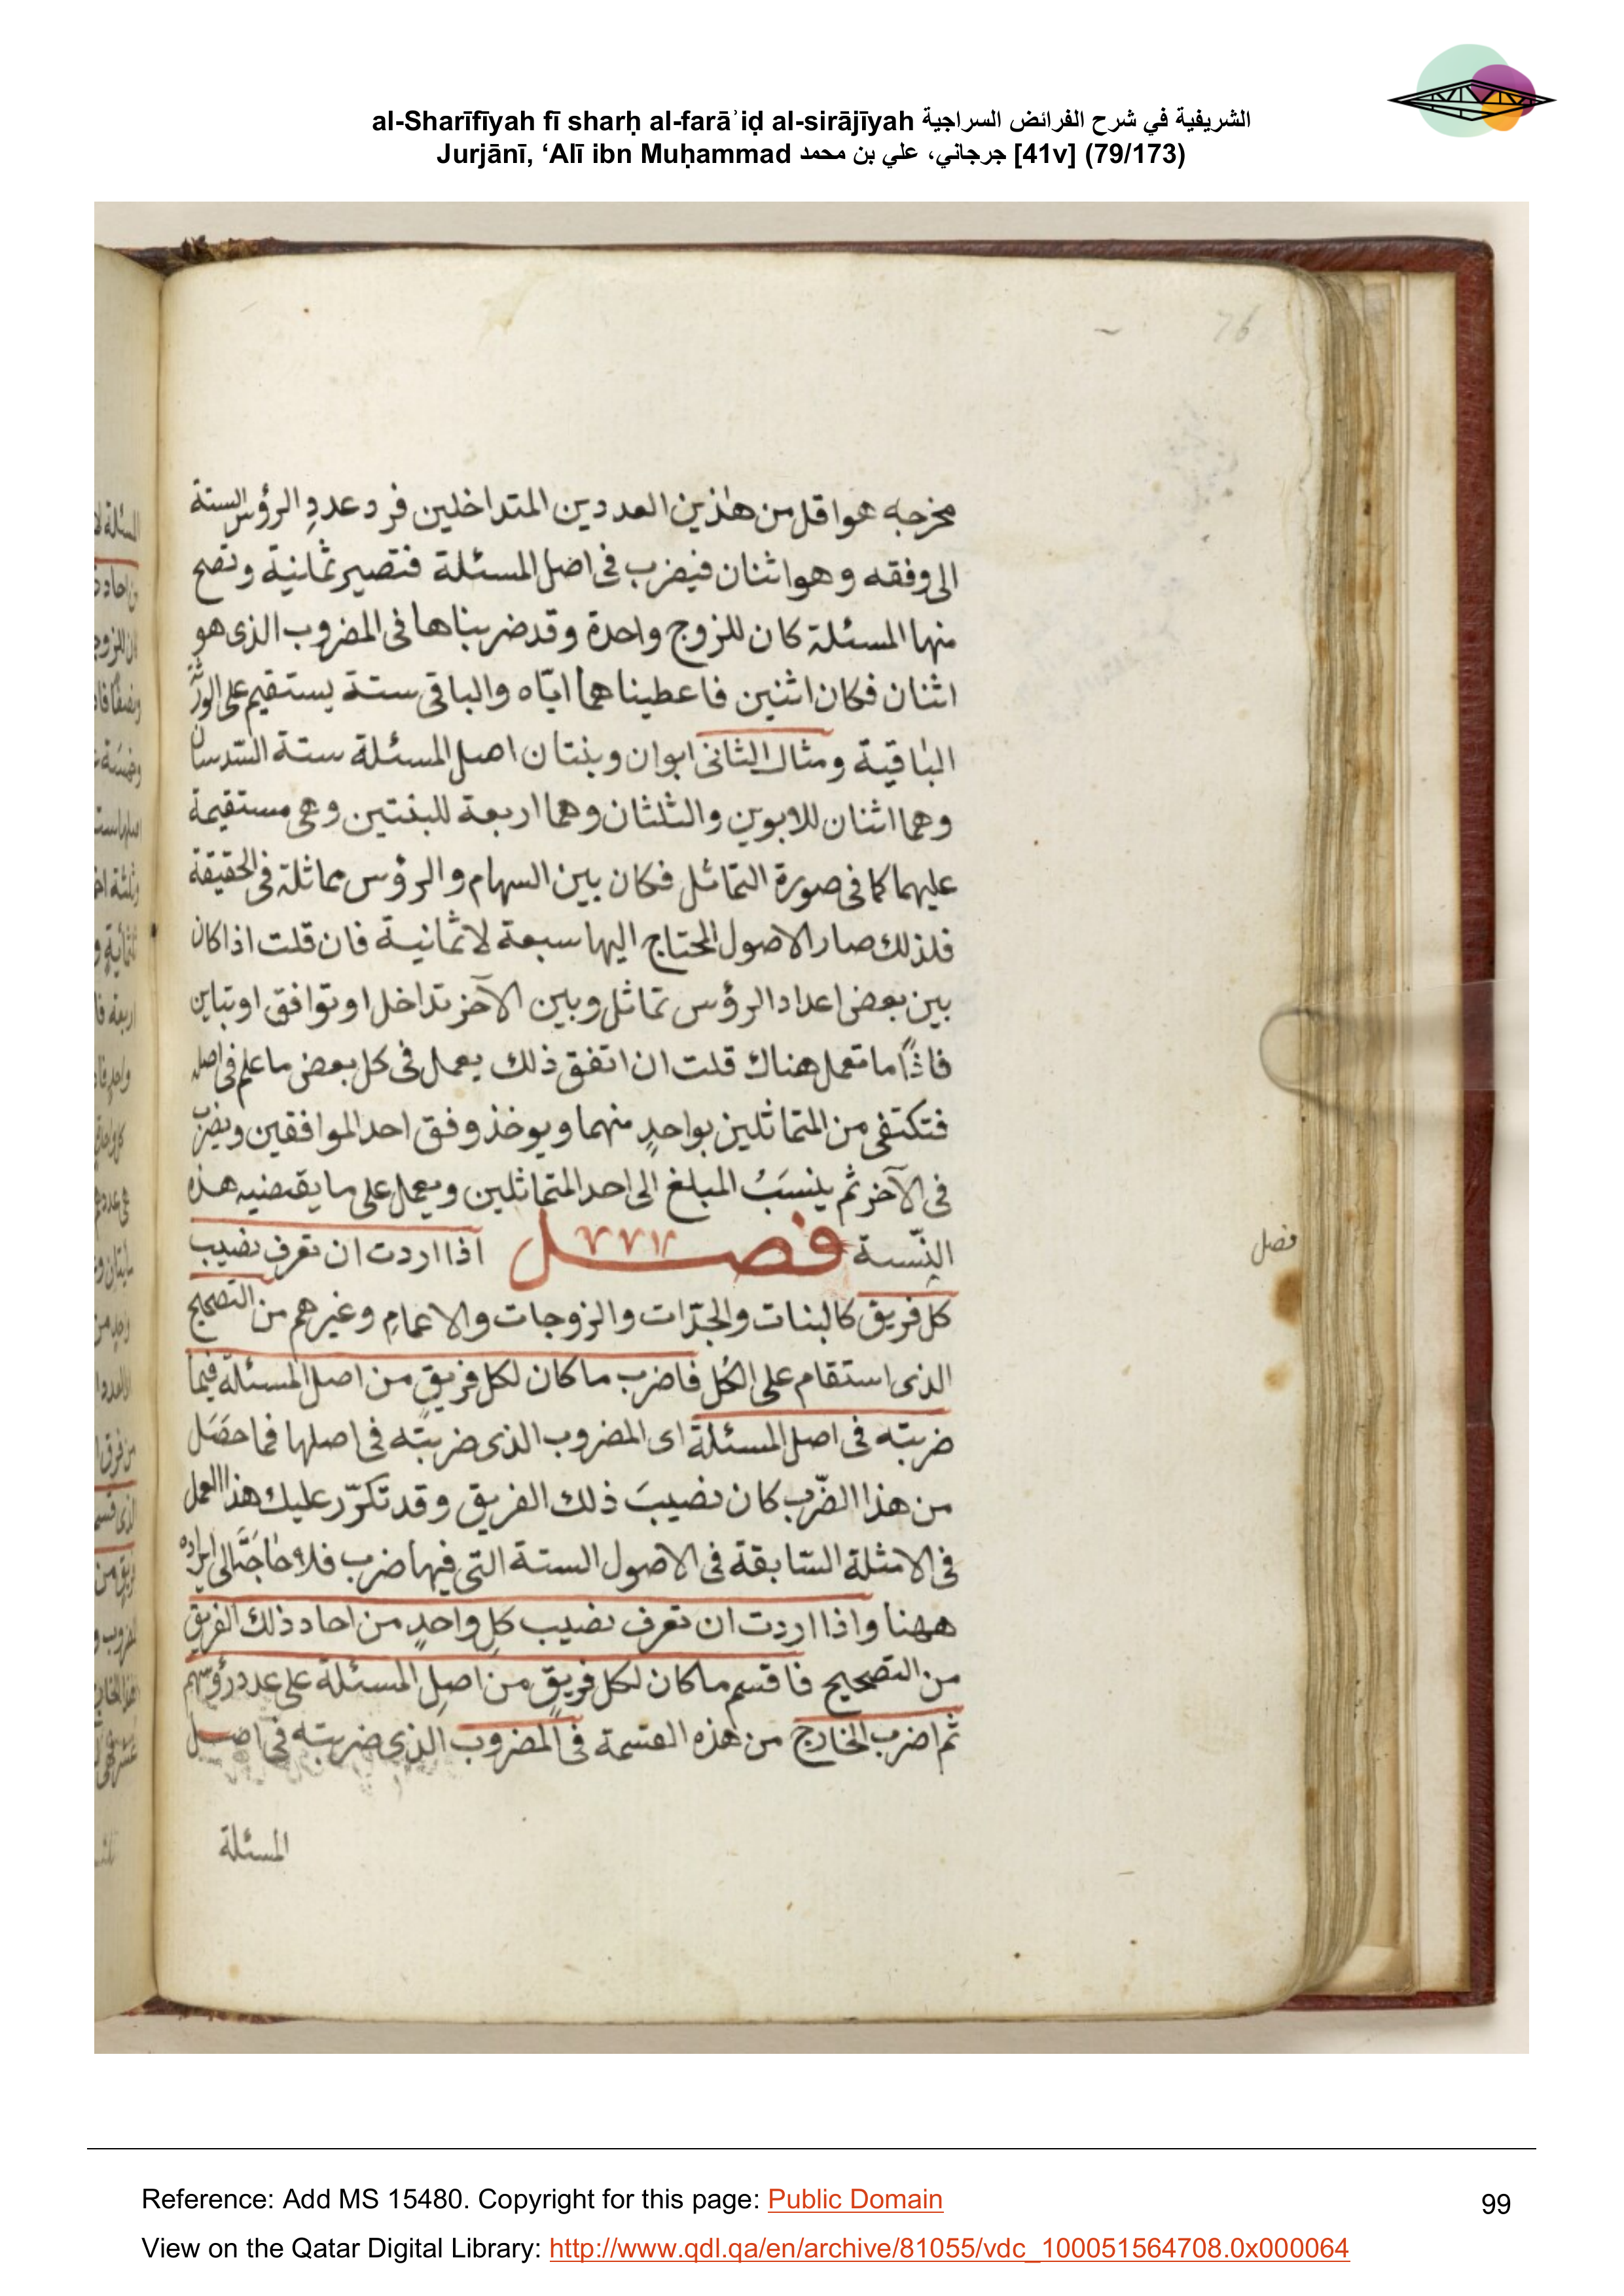 al-Sharīfīyah fī sharḥ al-farāʾiḍ al-sirājīyah الشريفية في شرح الفرائض السراجية
Jurjānī, ‘Alī ibn Muḥammad جرجاني، علي بن محمد [41v] (79/173)
76
مخرجه هو اقل من هذين العددين المتداخلين فرد عددِ الرؤس الستة
الى وفقه وهو اثنان فيضرب فى اصل المسئلة فتصير ثمانية وتصح
منها المسئلة كان للزوج واحدة وقد ضربناها فى المضروب الذى هو
اثنان فكان اثنين فاعطيناهما ايّاه والباقى ستة يستقيم على الورثة
الباقية ومثال الثانى ابوان وبنتان اصل المسئلة ستة السّدسان
وهما اثنان للابوين والثلثان وهما اربعة للبنتين وهى مستقيمة
عليهما كما فى صورة التماثل فكان بين السهام والرؤس مماثلة فى الحقيقة
فلذلك صار الاصول المحتاج اليها سبعة لا ثمانية فان قلت اذا كان
بين بعض اعداد الرؤس تماثل وبين الآخر تداخل او توافق او تباين
ما تعمل هناك قلت ان اتفق ذلك يعمل فى كل بعض ما علم فى اصله
فتكتفى من المتماثلين بواحدٍ منهما ويوخذ وفق احد الموافقين ويضرب
فى الآخر ثم ينسَبُ المبلغ الى احد المتماثلين ويعمل على ما يقتضيه هذه
النِّسبة فصل اذا اردت ان تعرف نصيب
فصل
كل فريق كالبنات والجدّات والزوجات والاعمامِ وغيرهم من التصحيح
الذى استقام على الكُل فاضرب ما كان لكل فريقٍ من اصل المسئلة فيما
ضربته فى اصل المسئلة اى المضروب الذى ضربته فى اصلها فما حصَل
من هذا الضّرب كان نصيبَ ذلك الفريق وقد تكرّر عليك هذا العمل
فى الامثلة السّابقة فى الاصول الستة التى فيها ضرب فلا حاجَةَ الى ايراده
ههنا واذا اردت ان تعرف نصيب كلِ واحدٍ من احاد ذلك الفريق
من التصحيح فاقسم ما كان لكل فريقٍ من اصلِ المسئلة على عدد رؤسهم
ثم اضرب الخارج من هذه القسمة فى المضروب الذى ضربته فى اصل
المسئلة
Reference: Add MS 15480. Copyright for this page: Public Domain
99
View on the Qatar Digital Library: http://www.qdl.qa/en/archive/81055/vdc_100051564708.0x000064